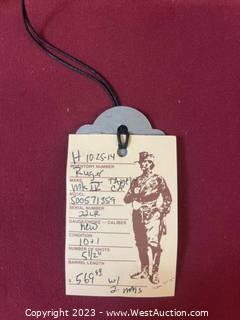 H 10-25-14
INVENTORY NUMBER
Ruger
MAKE
MK IV Target
MODEL
500571359
SERIAL NUMBER
22LR
GAUGE/CHOKE — CALIBER
New
CONDITION
10+1
NUMBER OF SHOTS
5 1/2"
BARREL LENGTH
$569 w/
2 mags
Copyright 2023 - WestAuction.com